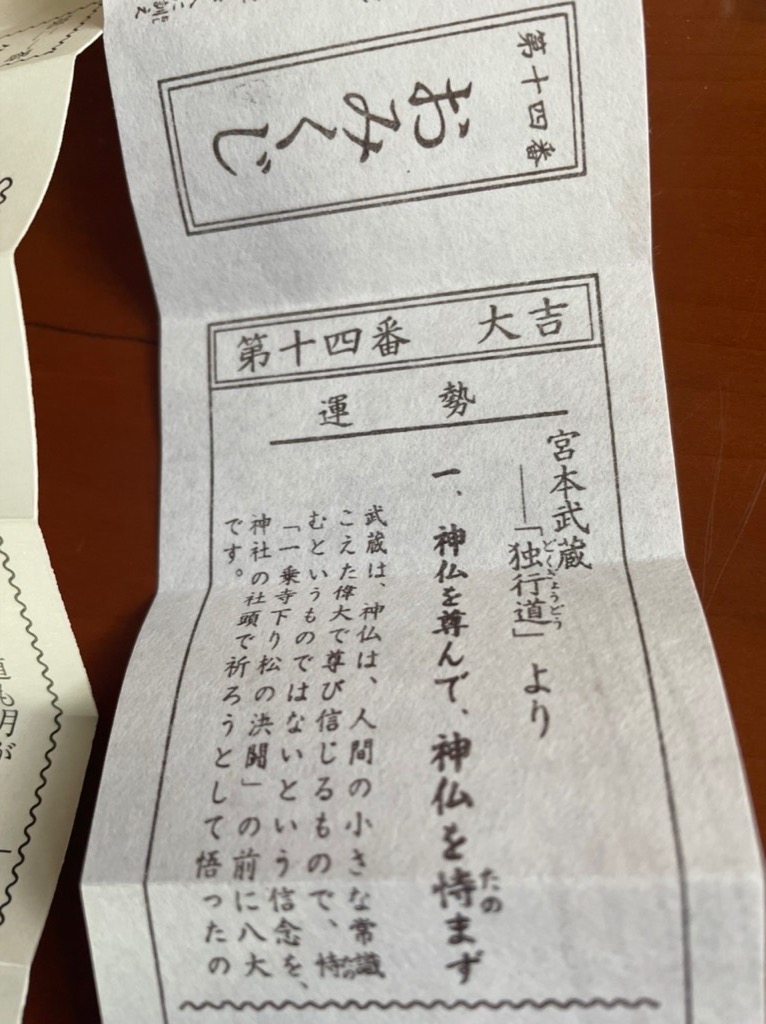 第十四番
おみくじ
第十四番 大吉
運勢
宮本武蔵
――「独行道」より
どくぎょうどう
一、神仏を尊んで、神仏を恃まず
たの
武蔵は、神仏は、人間の小さな常識
こえた偉大で尊び信じるもので、恃
むというものではないという信念を、
「一乗寺下り松の決闘」の前に八大
神社の社頭で祈ろうとして悟ったの
です。